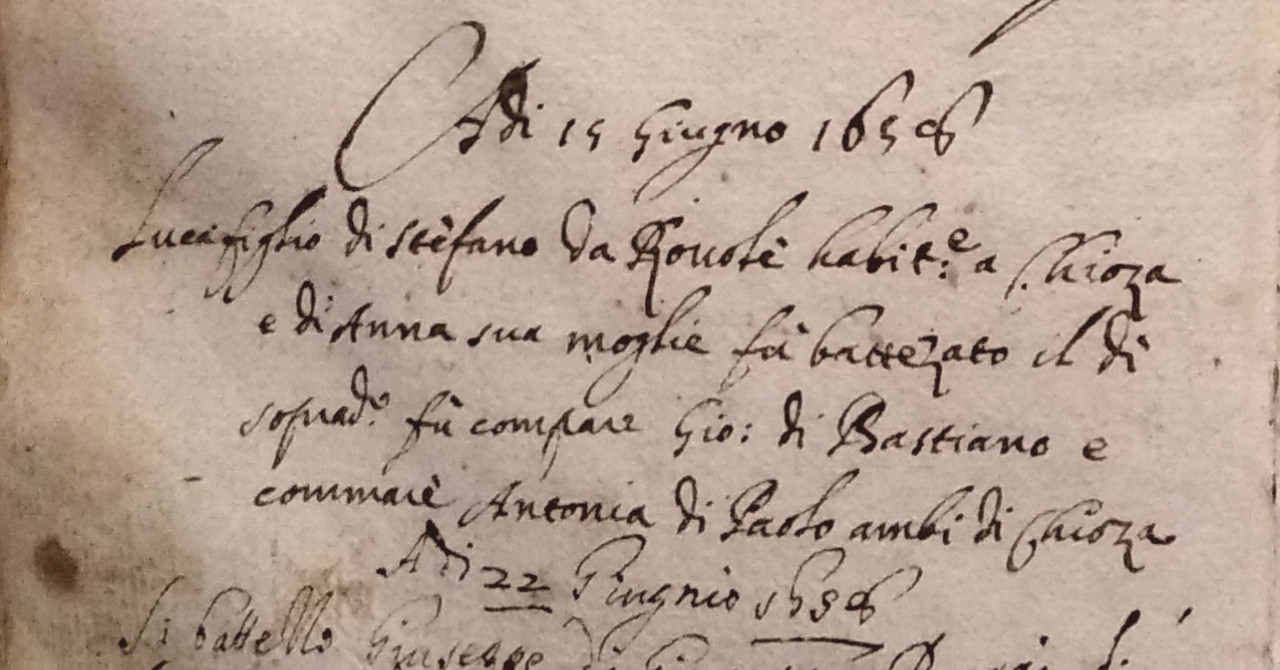 Adi 15 Giugno 1658
Luca figlio di Stefano da Rouolè habit.e a Chioza
e di Anna sua moglie fù battezato il dì
soprad.o fù compare Gio: di Bastiano e
commare Antonia di Paolo ambi di Chioza
Adi 22 Giugnio 1658
Si battello Giuseppe di